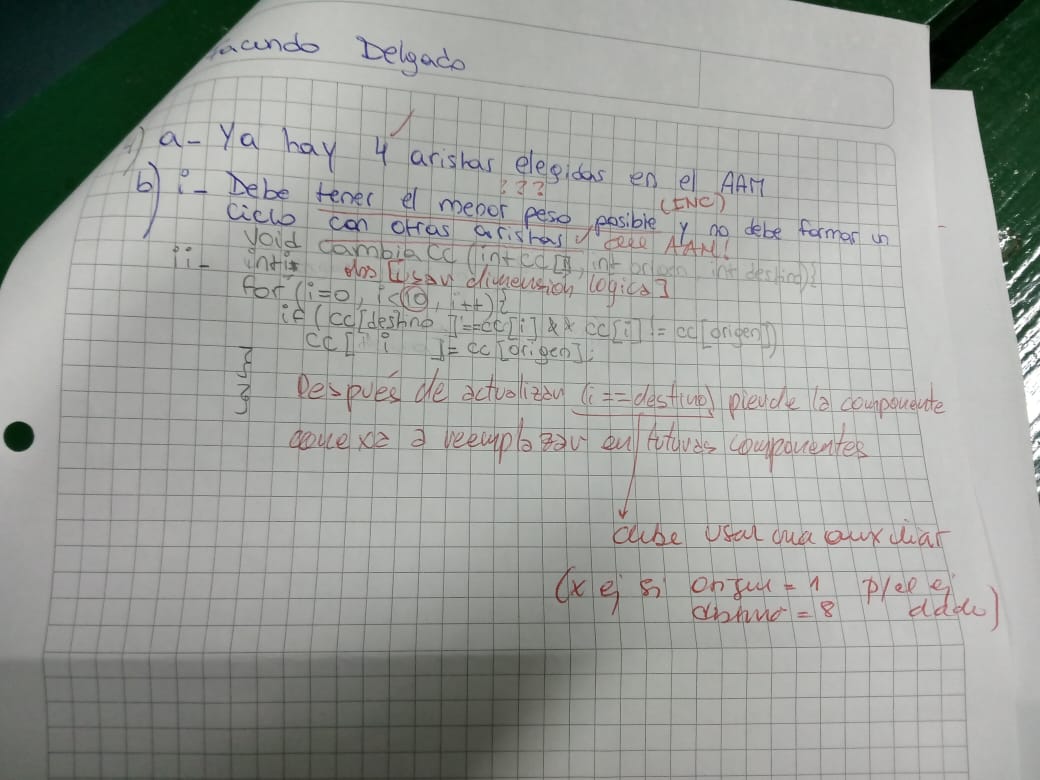 acundo Delgado
1) a- Ya hay 4 aristas elegidas en el AAM
???
(INC)
b) i- Debe tener el menor peso posible y no debe formar un
ciclo con otras aristas del AAM!
void cambiaCC (int cc[], int origen, int destino){
ii- int i; [usar dimension logica]
for (i=0, i<10, i++){
if (cc[destino]==cc[i] && cc[i] != cc[origen])
cc[ i ]= cc[origen];
}
}
}
Después de actualizar (i==destino) pierde la componente
conexa a reemplazar en futuras componentes
debe usar una auxiliar
(x ej si origen = 1 p/el ej
destino = 8 dado)